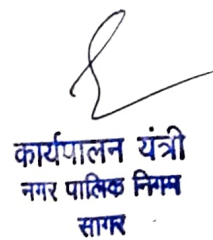 कार्यपालन यंत्री
नगर पालिक निगम
सागर